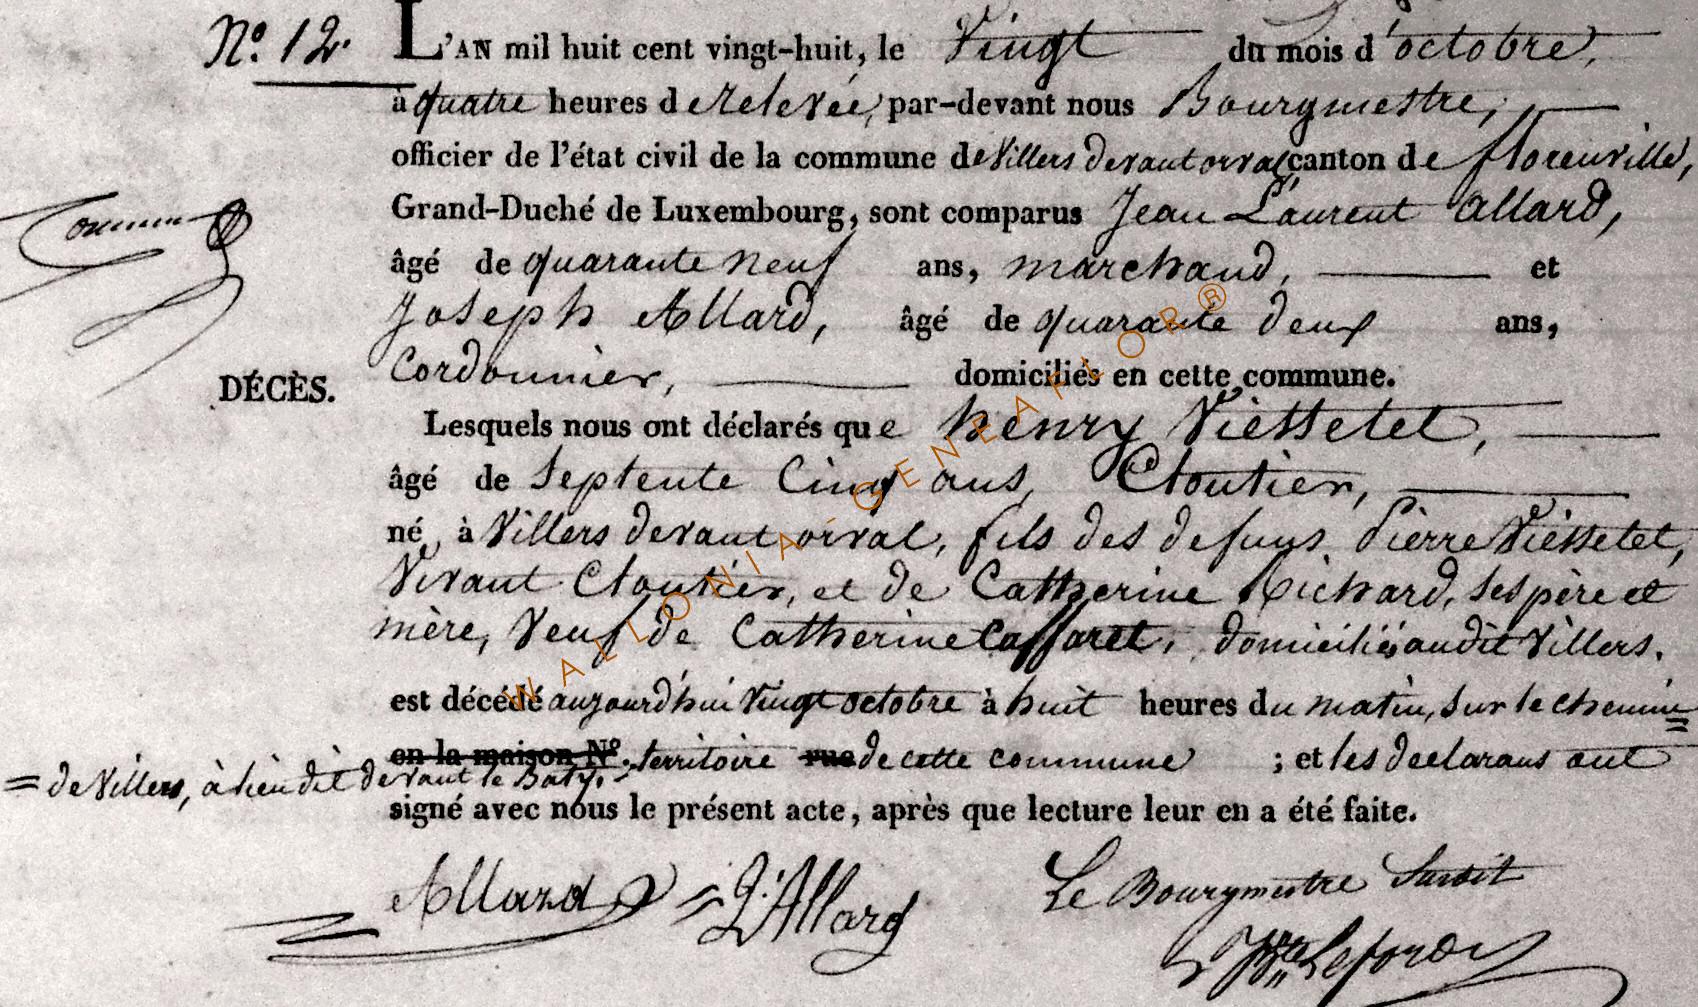 N.º 12.
L'AN mil huit cent vingt-huit, le Vingt du mois d'octobre,
à quatre heures de relevée, par-devant nous Bourgmestre,
officier de l'état civil de la commune de Villers devant orval, canton de florenville,
Grand-Duché de Luxembourg, sont comparus Jean Laurent Allard,
âgé de quarante neuf ans, marchand, et
Joseph Allard, âgé de quarante deux ans,
DÉCÈS.
Cordonnier, domiciliés en cette commune.
Lesquels nous ont déclarés que henry Viesselet,
âgé de Septente Cinq ans, Cloutier,
né à Villers devant orval, fils des defuns Pierre Viesselet,
Vivant Cloutier, et de Catherine Richard, ses père et
mère, Veuf de Catherine Caffaret, domiciliés audit Villers.
est décédé aujourd'hui Vingt octobre à huit heures du matin, sur le chemin =
= de Villers, à lieu dit devant le Baty.
en la maison Nº. territoire rue de cette commune ; et les declarans ont
signé avec nous le présent acte, après que lecture leur en a été faite.
Allard J. Allard Le Bourgmestre Susdit
WALLONIA-GENEAFLOR®